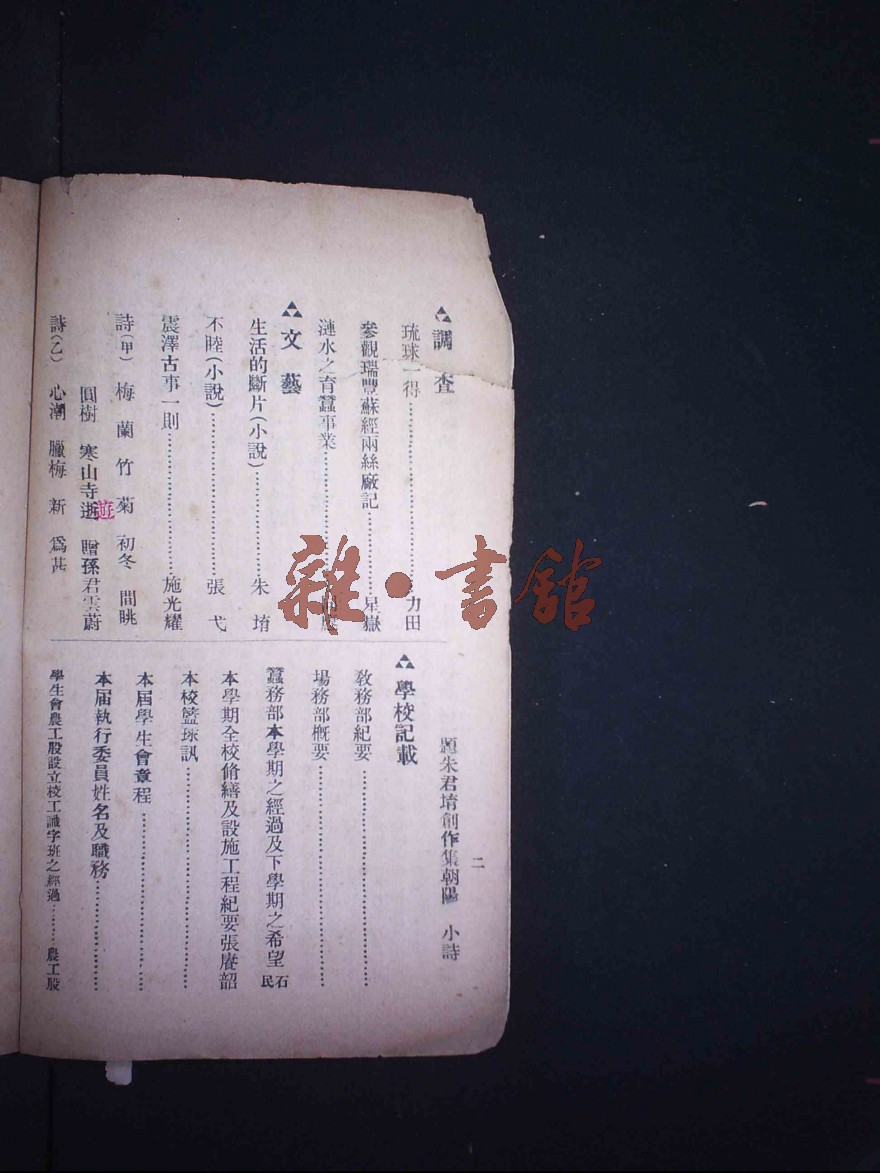 調查
琉球一得……力田
參觀瑞豐蘇經兩絲廠記……星嶽
漣水之育蠶事業……
文藝
生活的斷片(小說)……朱堉
不睦(小說)……張弋
震澤古事一則……施光耀
詩(甲) 梅蘭竹菊 初冬 間眺
圓樹 寒山寺遊 贈孫君雲蔚
遊
詩(乙) 心潮 臘梅 新 爲甚
題朱君堉創作集朝陽 小詩
二
學校記載
敎務部紀要……
場務部槪要……
蠶務部本學期之經過及下學期之希望 石民
本學期全校脩繕及設施工程紀要張虞韶
本校籃球訊……
本屆學生會章程……
本届執行委員姓名及職務……
學生會農工股設立校工識字班之經過……農工股
雜·書館